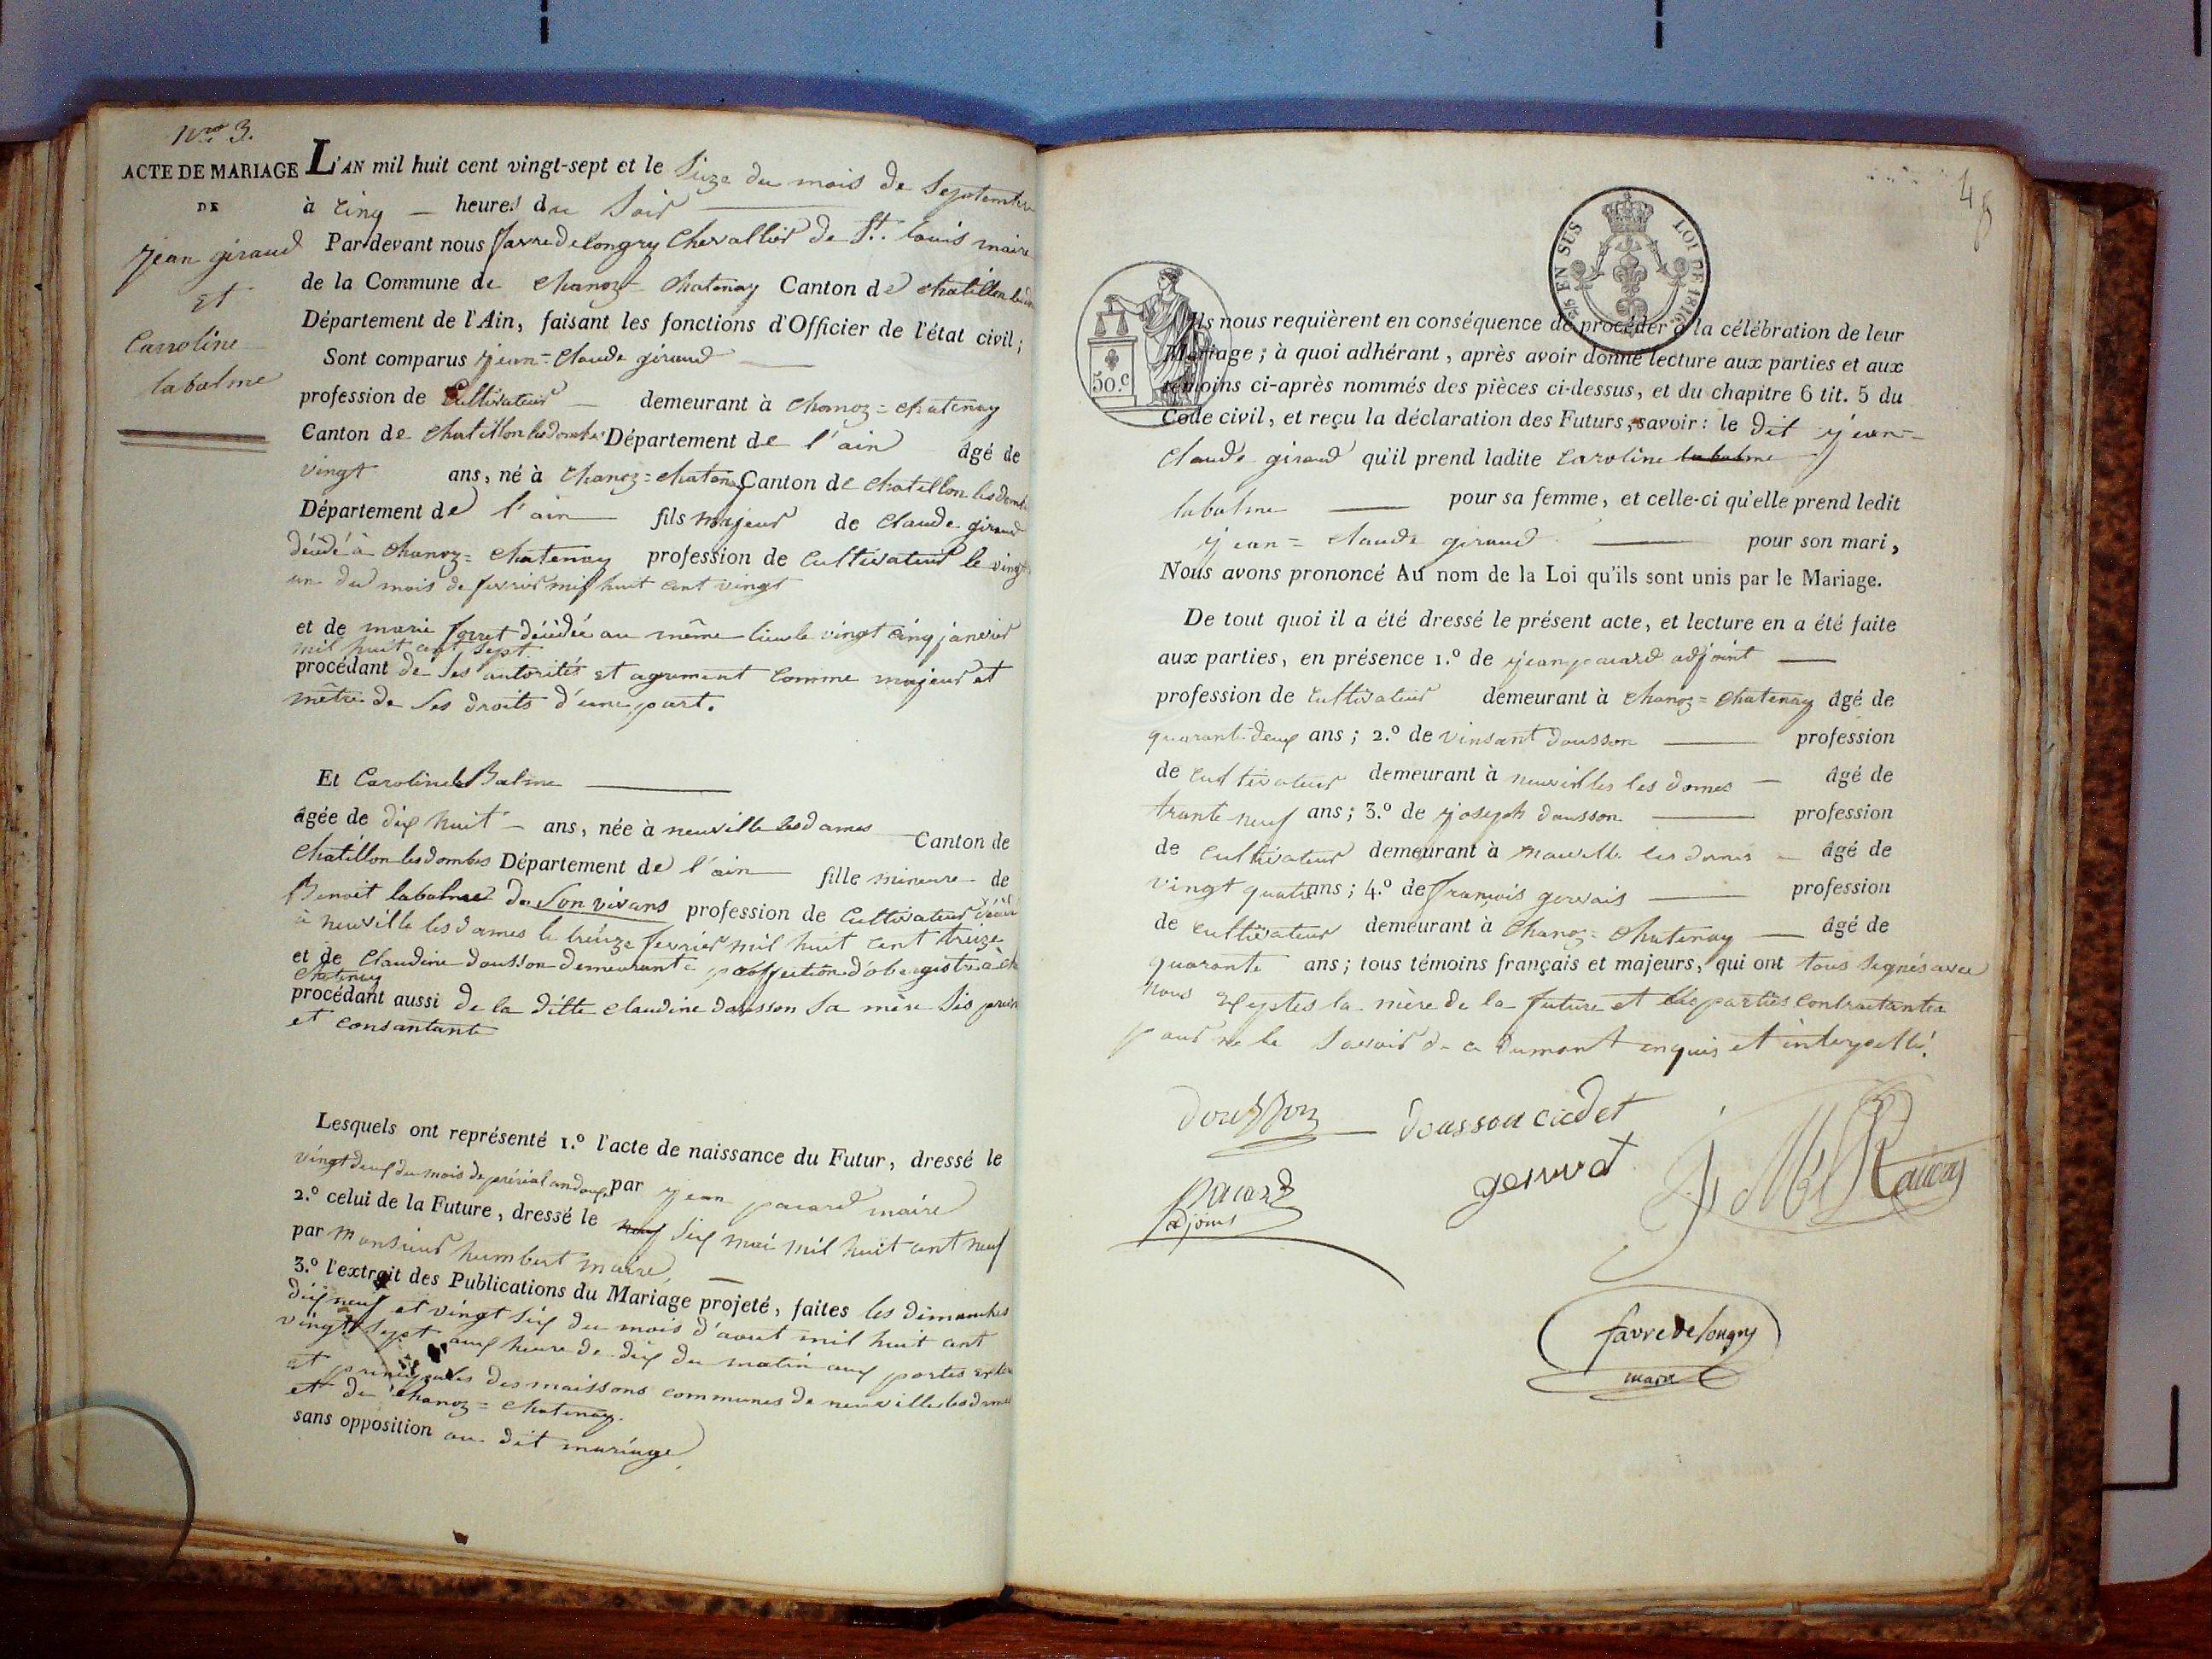 Nro 3.
ACTE DE MARIAGE
DE
jean giraud
et
Carroline
labalme
L'AN mil huit cent vingt-sept et le Sieze du mois de Septembre
à cinq — heures du Soir —
Pardevant nous favre de longry Chevallier de St. louis maire
de la Commune de Chanoz Chatenay Canton de Chatillon
Département de l'Ain, faisant les fonctions d'Officier de l'état civil;
Sont comparus jean=Claude giraud —
profession de Cultivateur — demeurant à Chanoz=Chatenay
Canton de Chatillon les dombes Département de l'ain âgé de
vingt ans, né à Chanoz=chatenay Canton de Chatillon les dombes
Département de l'ain — fils majeur de Claude giraud
décédé à Chanoz=Chatenay profession de Cultivateur le vingt
un du mois de fevrier mil huit cent vingt
et de marie décédée au même lieu le vingt cinq janvier
mil huit cent sept.
procédant de ses autorités et agrement Comme majeur et
mêtre de Ses droits d'une part.
Et Caroline la Balme —
âgée de dix huit — ans, née à neuville les dames — Canton de
Chatillon les dombes Département de l'ain — fille mineure — de
Benoit labalme de Son vivans profession de Cultivateur décédé
à neuville les dames le treize fevrier mil huit cent treize
et de Claudine dousson demeurante proffection d'obergiste à
Chatenay
procédant aussi de la ditte Claudine dousson Sa mère
et consantante
Lesquels ont représenté 1.° l'acte de naissance du Futur, dressé le
vingt deux du mois de prérial an douze par jean pacard maire
2.° celui de la Future, dressé le neuf Six mai mil huit cent neuf
par monsieur humbert maire —
3.° l'extrait des Publications du Mariage projeté, faites les dimanches
dix neuf et vingt Six du mois d'aout mil huit cent
vingt Sept aux heure de dix du matin aux portes
et principales des maissons communes de neuville les dames
et de Chanoz=Chatenay.
sans opposition au dit mariage
48
25 EN SUS
LOI DE 1816.
50.c
Ils nous requièrent en conséquence de procéder à la célébration de leur
Mariage; à quoi adhérant, après avoir donné lecture aux parties et aux
témoins ci-après nommés des pièces ci-dessus, et du chapitre 6 tit. 5 du
Code civil, et reçu la déclaration des Futurs, savoir: le dit jean=
Claude giraud qu'il prend ladite Caroline labalme
labalme — pour sa femme, et celle-ci qu'elle prend ledit
jean=Claude giraud — pour son mari,
Nous avons prononcé Au nom de la Loi qu'ils sont unis par le Mariage.
De tout quoi il a été dressé le présent acte, et lecture en a été faite
aux parties, en présence 1.° de jean pacard adjoint —
profession de Cultivateur demeurant à Chanoz=Chatenay âgé de
quarante deux ans; 2.° de vinsant dousson — profession
de Cultivateur demeurant à neuvilles les dames — âgé de
trante neuf ans; 3.° de joseph dousson — profession
de Cultivateur demeurant à neuville les dames — âgé de
vingt quatre ans; 4.° de françois gervais — profession
de cultivateur demeurant à Chanoz=Chatenay — âgé de
quarante ans; tous témoins français et majeurs, qui ont tous Segnés avec
nous exeptes la mère de la future et les parties Contractantes
pour ne le Savoir de ce dumant enquis et interpellé.
dousson dousson cadet
pacard gervat
adjoint
favre de longry
maire